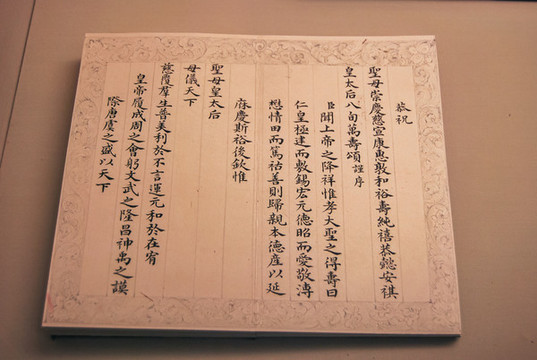 恭祝
聖母崇慶慈宣康惠敦和裕壽純禧恭懿安祺
皇太后八旬萬壽頌謹序
臣聞上帝之降祥惟孝大聖之得壽曰
仁皇極建而敷錫宏元德昭而愛敬溥
想情田而篤祜善則歸親本德產以延
庥慶斯裕後欽惟
聖母皇太后
母儀天下
慈覆羣生普美利於不言運元和於在宥
皇帝履成周之會躬文武之隆昌神禹之謨
際唐虞之盛以天下